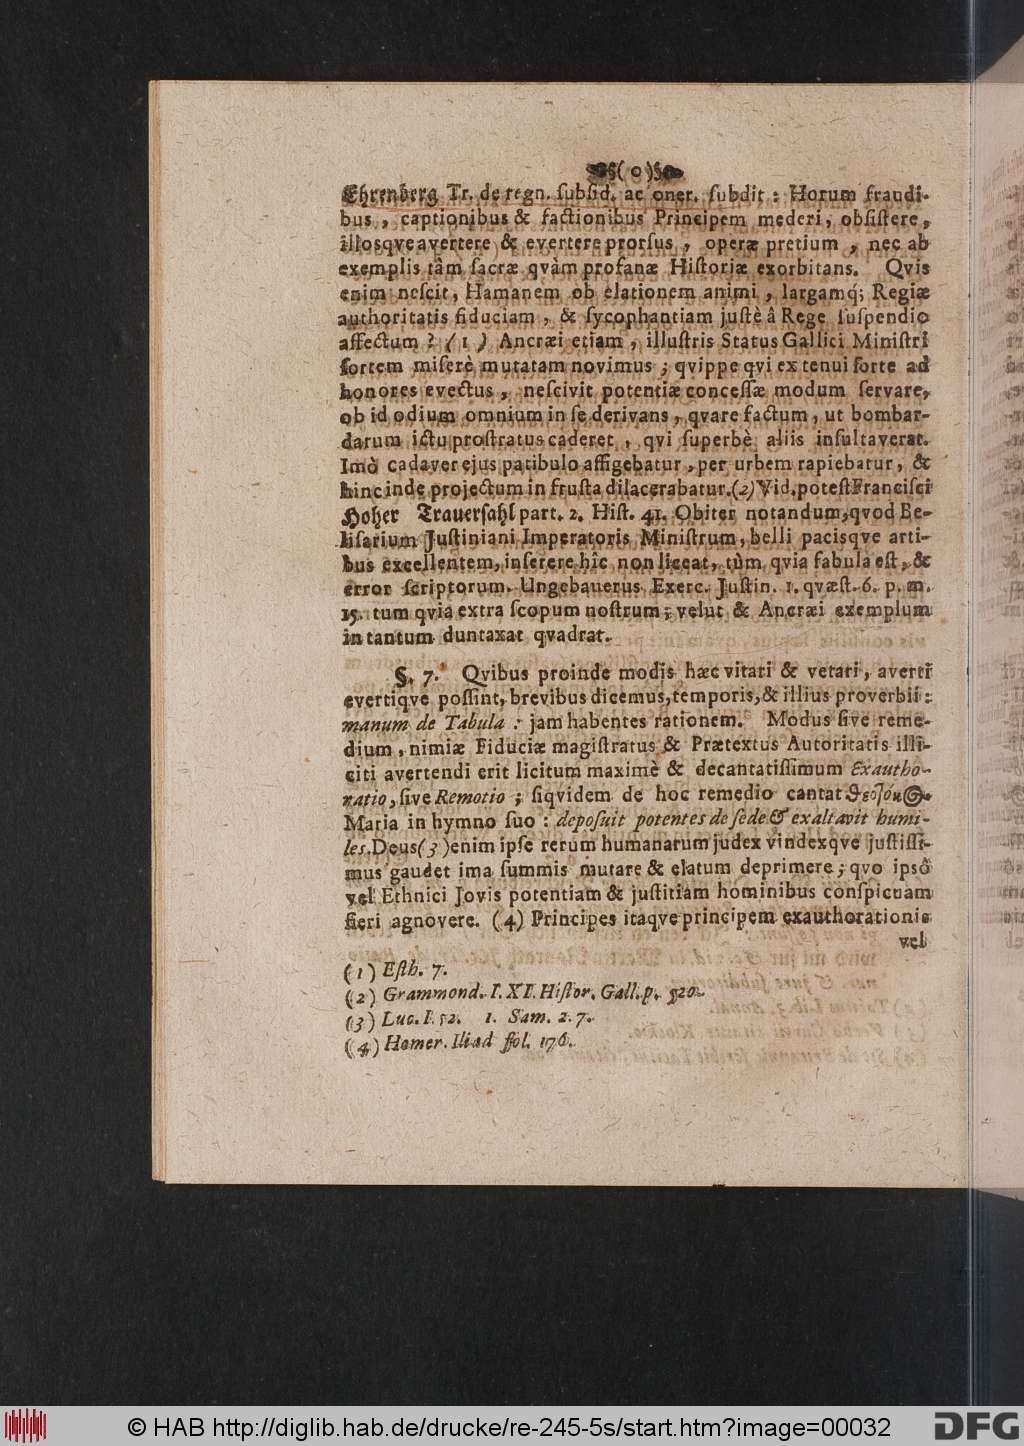 §( o )§
Ehrenberg Tr. de regn. ſubſid. ac oner. ſubdit : Horum fraudi-
bus , captionibus & factionibus Principem mederi, obſiſtere,
illosqve avertere & evertere prorſus , operæ pretium , nec ab
exemplis tâm ſacræ qvàm profanæ Hiſtoriæ exorbitans. Qvis
enim neſcit, Hamanem ob elationem animi , largamq́; Regiæ
authoritatis fiduciam , & ſycophantiam juſtè â Rege ſuſpendio
affectum ? ( 1 ) Ancræi etiam , illuſtris Status Gallici Miniſtri
ſortem miſerè mutatam novimus ; qvippe qvi ex tenui ſorte ad
honores evectus , neſcivit potentiæ conceſſæ modum ſervare,
ob id odium omnium in ſe derivans , qvare factum , ut bombar-
darum ictu proſtratus caderet , qvi ſuperbè aliis inſultaverat.
Imò cadaver ejus patibulo affigebatur , per urbem rapiebatur, &
hinc inde projectum in fruſta dilacerabatur.(2) Vid. poteſt Franciſci
Hoher Trauerſahl part. 2. Hiſt. 41. Obiter notandum, qvod Be-
liſarium Juſtiniani Imperatoris Miniſtrum, belli pacisqve arti-
bus excellentem, inſerere hîc non liceat, tùm qvia fabula eſt, &
error ſcriptorum. Ungebauerus Exerc. Juſtin. 1. qvæſt. 6. p. m.
15. tum qvia extra ſcopum noſtrum ; velut & Ancræi exemplum
in tantum duntaxat qvadrat.
§. 7. Qvibus proinde modis hæc vitari & vetari, averti
evertiqve poſſint, brevibus dicemus, temporis, & illius proverbii :
manum de Tabula : jam habentes rationem. Modus ſive reme-
dium , nimiæ Fiduciæ magiſtratus & Prætextus Autoritatis illi-
citi avertendi erit licitum maximè & decantatiſſimum Exautho-
ratio, ſive Remotio ; ſiqvidem de hoc remedio cantat Θεοτόκος
Maria in hymno ſuo : depoſuit potentes de ſede & exaltavit humi-
les. Deus (3) enim ipſe rerum humanarum judex vindexqve juſtiſſi-
mus gaudet ima ſummis mutare & elatum deprimere ; qvo ipſo
vel Ethnici Jovis potentiam & juſtitiam hominibus conſpicuam
fieri agnovere. (4) Principes itaqve principem exauthorationis
vel
(1) Eſth. 7.
(2) Grammond. I. XI. Hiſtor. Gall. p. 520.
(3) Luc. I. 52. 1. Sam. 2. 7.
(4) Homer. Iliad fol. 176.
© HAB http://diglib.hab.de/drucke/re-245-5s/start.htm?image=00032
DFG